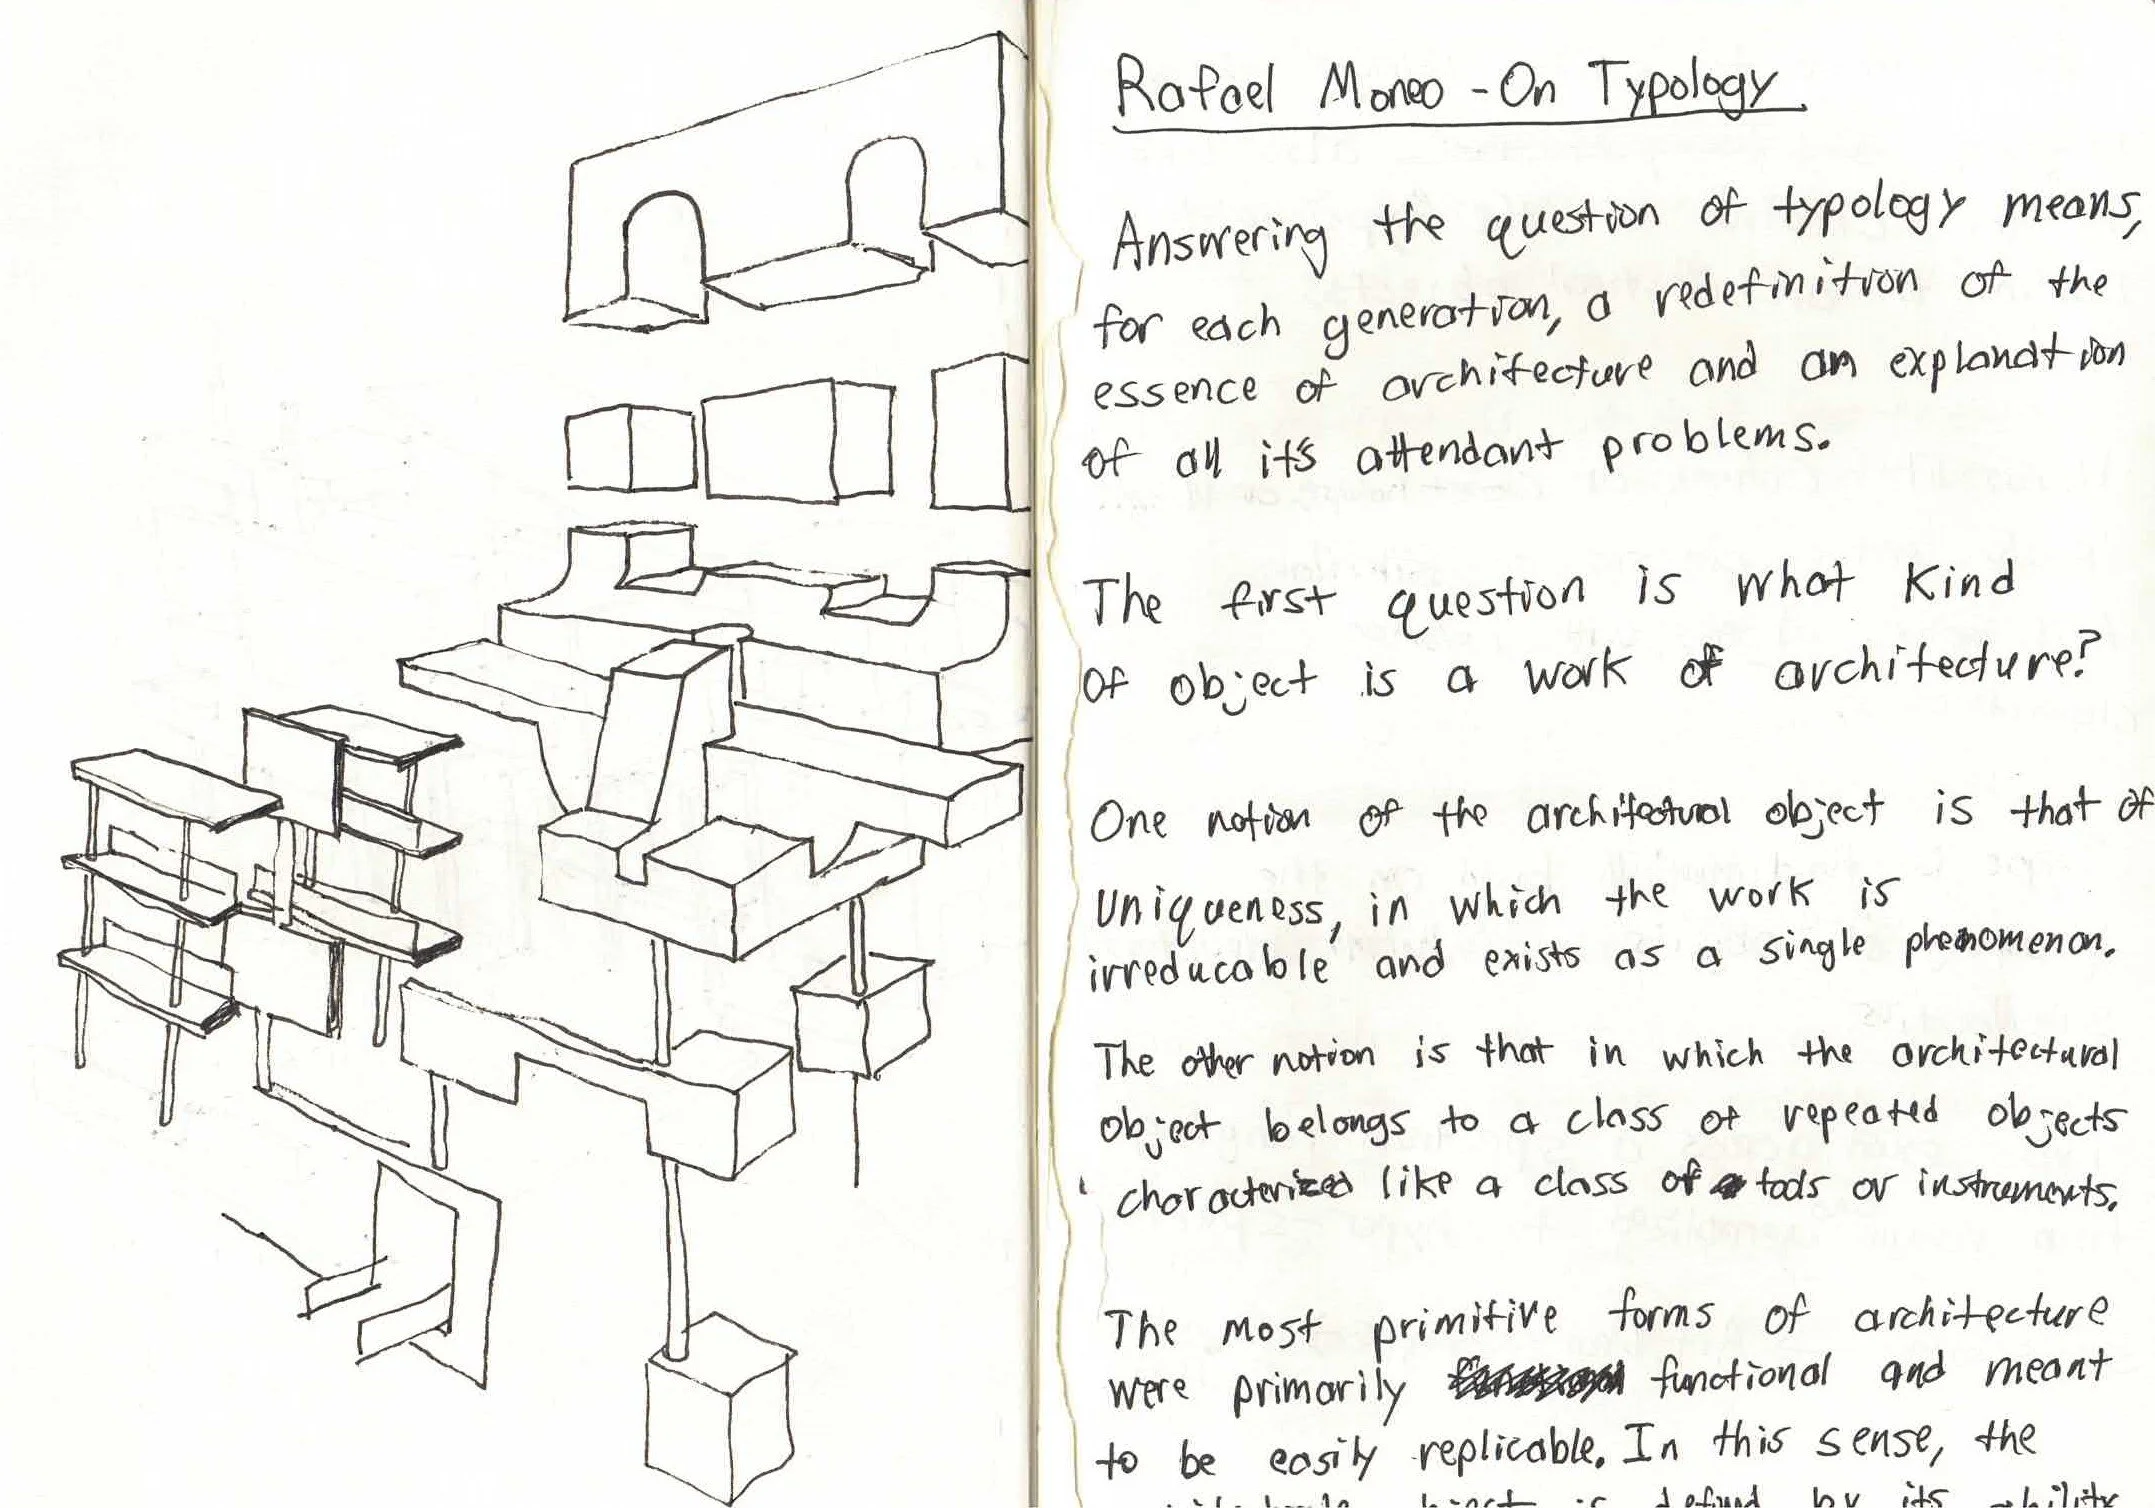 Rafael Moneo - On Typology
Answering the question of typology means,
for each generation, a redefinition of the
essence of architecture and an explanation
of all it's attendant problems.
The first question is what kind
of object is a work of architecture?
One notion of the architectural object is that of
Uniqueness, in which the work is
irreducable and exists as a single phenomenon.
The other notion is that in which the architectural
object belongs to a class of repeated objects
characterized like a class of tools or instruments.
The most primitive forms of architecture
were primarily functional and meant
to be easily replicable. In this sense, the
object is defined by its ability